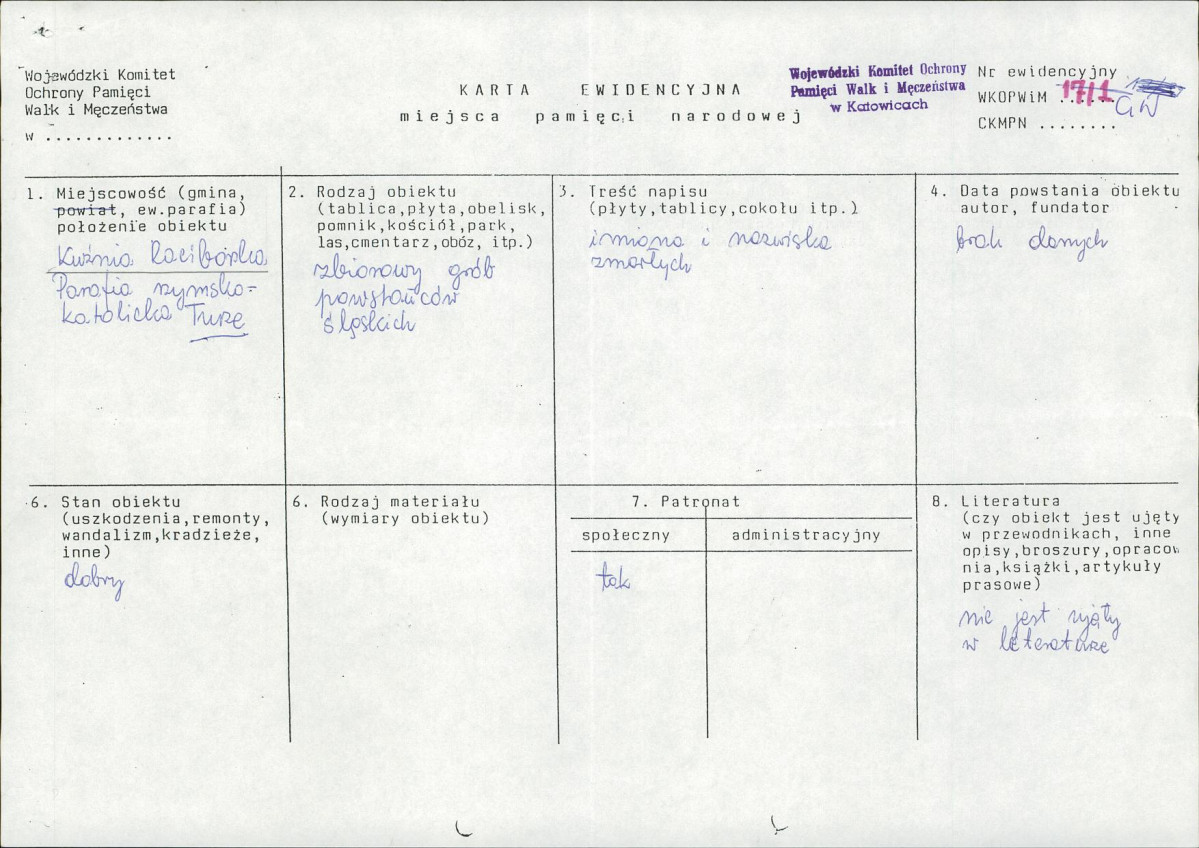 Wojewódzki Komitet
Ochrony Pamięci
Walk i Męczeństwa
w .............
KARTA EWIDENCYJNA
miejsca pamięci narodowej
Wojewódzki Komitet Ochrony
Pamięci Walk i Męczeństwa
w Katowicach
Nr ewidencyjny
WKOPWiM ...... 17/1 GW
CKMPN ........
1. Miejscowość (gmina,
powiat, ew.parafia)
położenie obiektu
Kuźnia Raciborska
Parafia rzymsko-
katolicka Turze
2. Rodzaj obiektu
(tablica,płyta,obelisk,
pomnik,kościół,park,
las,cmentarz,obóz, itp.)
zbiorowy grób
powstańców
śląskich
3. Treść napisu
(płyty,tablicy,cokołu itp.)
imiona i nazwiska
zmarłych
4. Data powstania obiektu
autor, fundator
brak danych
6. Stan obiektu
(uszkodzenia,remonty,
wandalizm,kradzieże,
inne)
dobry
6. Rodzaj materiału
(wymiary obiektu)
7. Patronat
społeczny
administracyjny
tak
8. Literatura
(czy obiekt jest ujęty
w przewodnikach, inne
opisy,broszury,opracow
nia,książki,artykuły
prasowe)
nie jest ujęty
w literaturze